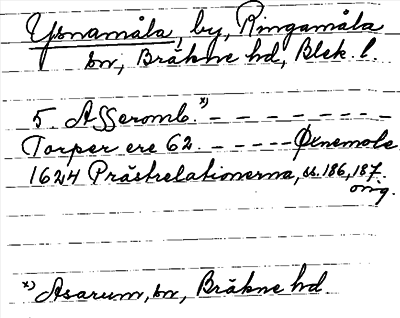 Ybnamåla, by, Ringamåla
sn, Bräkne hd, Blek. l.
5. Asseromb.x) - - - - - - - -
Torper ere 62. - - - - - Ølnemole
1624 Prästrelationerna, ss. 186, 187.
orig.
x) Asarum, sn, Bräkne hd.